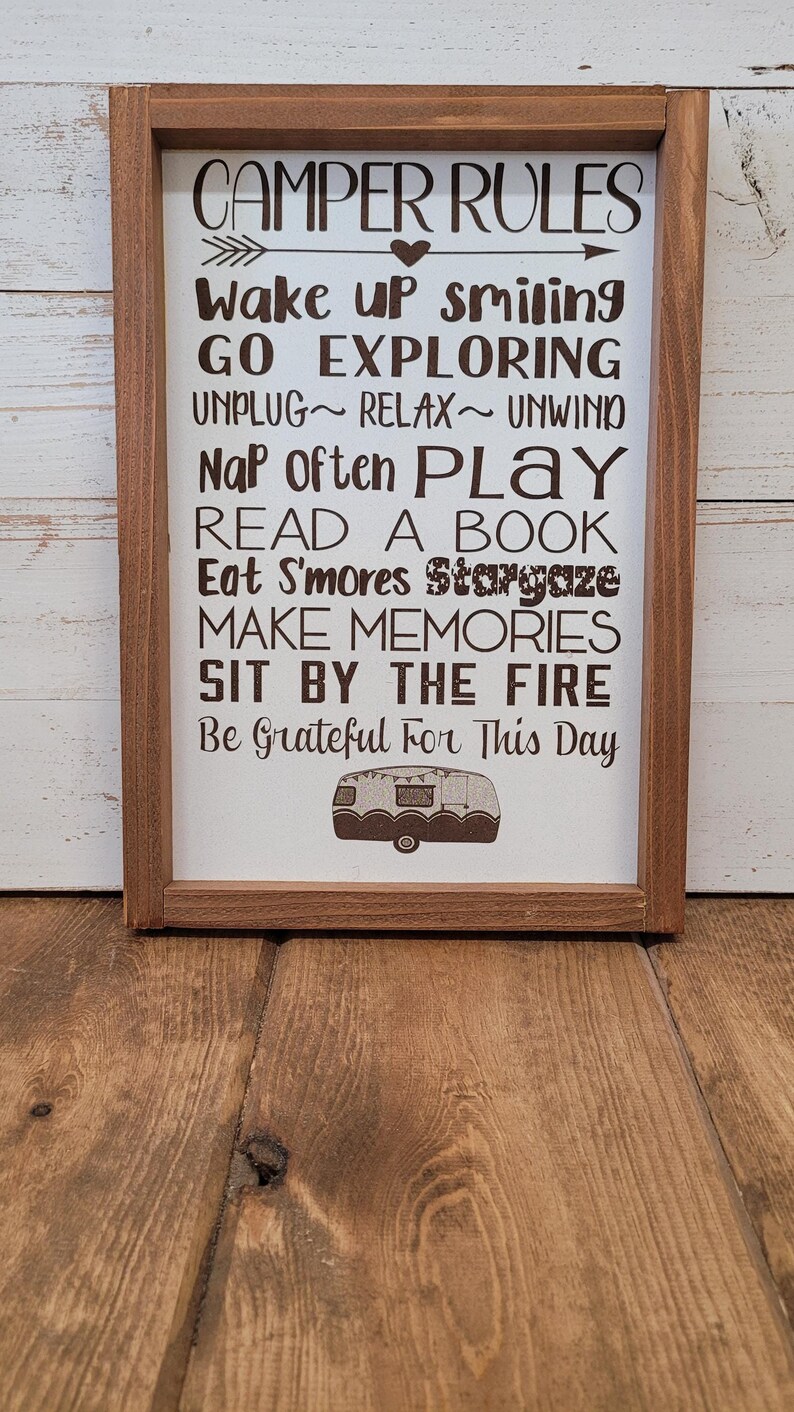 CAMPER RULES
Wake up smiling
GO EXPLORING
UNPLUG~ RELAX~ UNWIND
Nap Often PLAY
READ A BOOK
Eat S'mores Stargaze
MAKE MEMORIES
SIT BY THE FIRE
Be Grateful For This Day